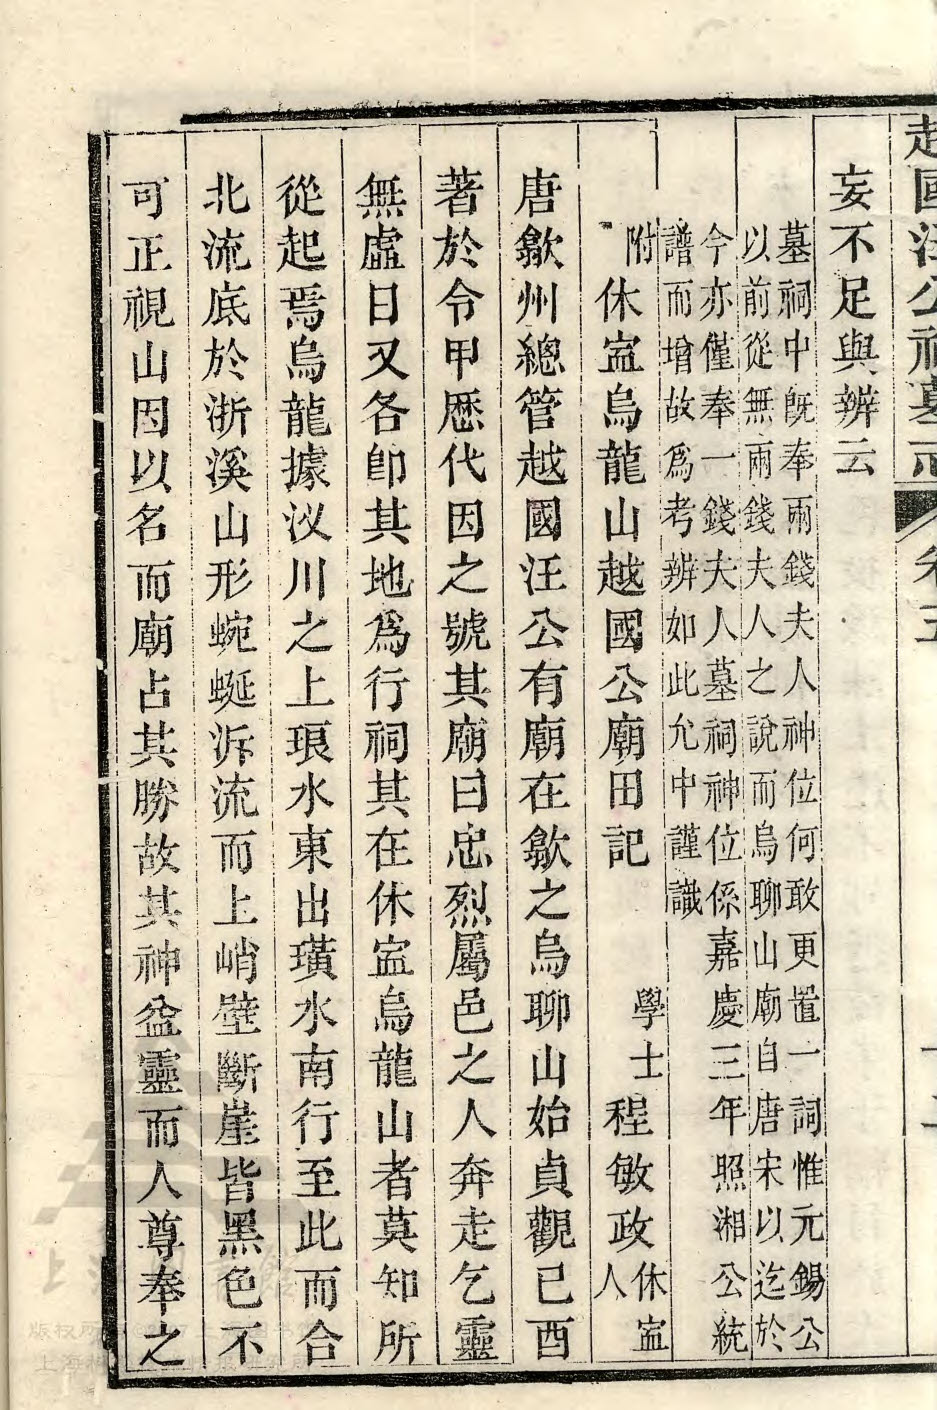 越國汪公祠墓志 卷五
妄不足與辨云
墓祠中旣奉兩錢夫人神位何敢更置一詞惟元錫公
以前從無兩錢夫人之說而烏聊山廟自唐宋以迄於
今亦僅奉一錢夫人墓祠神位係嘉慶三年照湘公統
譜而增故爲考辨如此允中謹識
附休寍烏龍山越國公廟田記 學士程敏政休寍人
唐歙州總管越國汪公有廟在歙之烏聊山始貞觀已酉
著於令甲歷代因之號其廟曰忠烈屬邑之人奔走乞靈
無虛日又各卽其地爲行祠其在休寍烏龍山者莫知所
從起焉烏龍據汊川之上琅水東出璜水南行至此而合
北流底於浙溪山形蜿蜒泝流而上峭壁斷崖皆黑色不
可正視山因以名而廟占其勝故其神益靈而人尊奉之